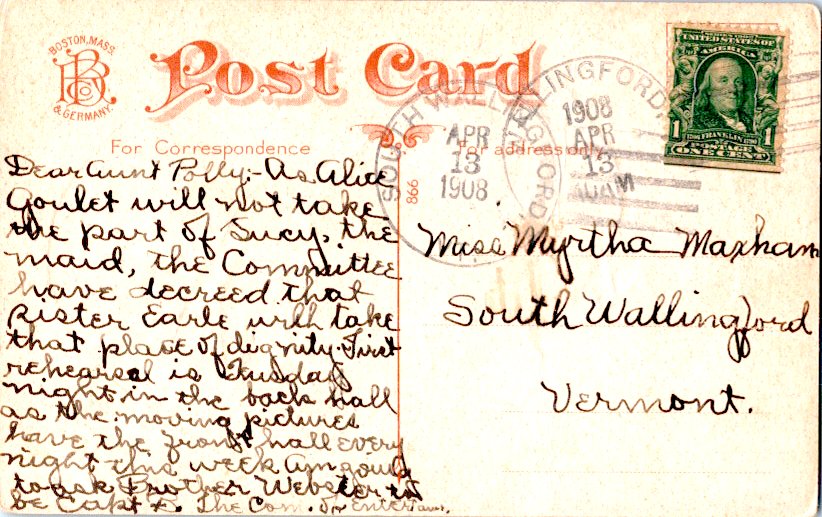 BOSTON, MASS.
B
Co
& GERMANY.
Post Card
For Correspondence
For address only
866
SOUTH WALLINGFORD,
APR
13
1908
WALLINGFORD,
1908
APR
13
10AM
UNITED STATES OF
AMERICA
1 FRANKLIN 1
POSTAGE
ONE CENT
Dear Aunt Polly:- As Alice
Goulet will not take
the part of Lucy, the
maid, the Committee
have decreed that
sister Earle will take
that place of dignity. First
rehearsal is Tuesday
night in the back hall
as the moving pictures
have the front hall every
night this week. Am going
to ask Brother Webster to
be Capt B. The Com. on
Miss Myrtha Maxham
South Wallingford
Vermont.